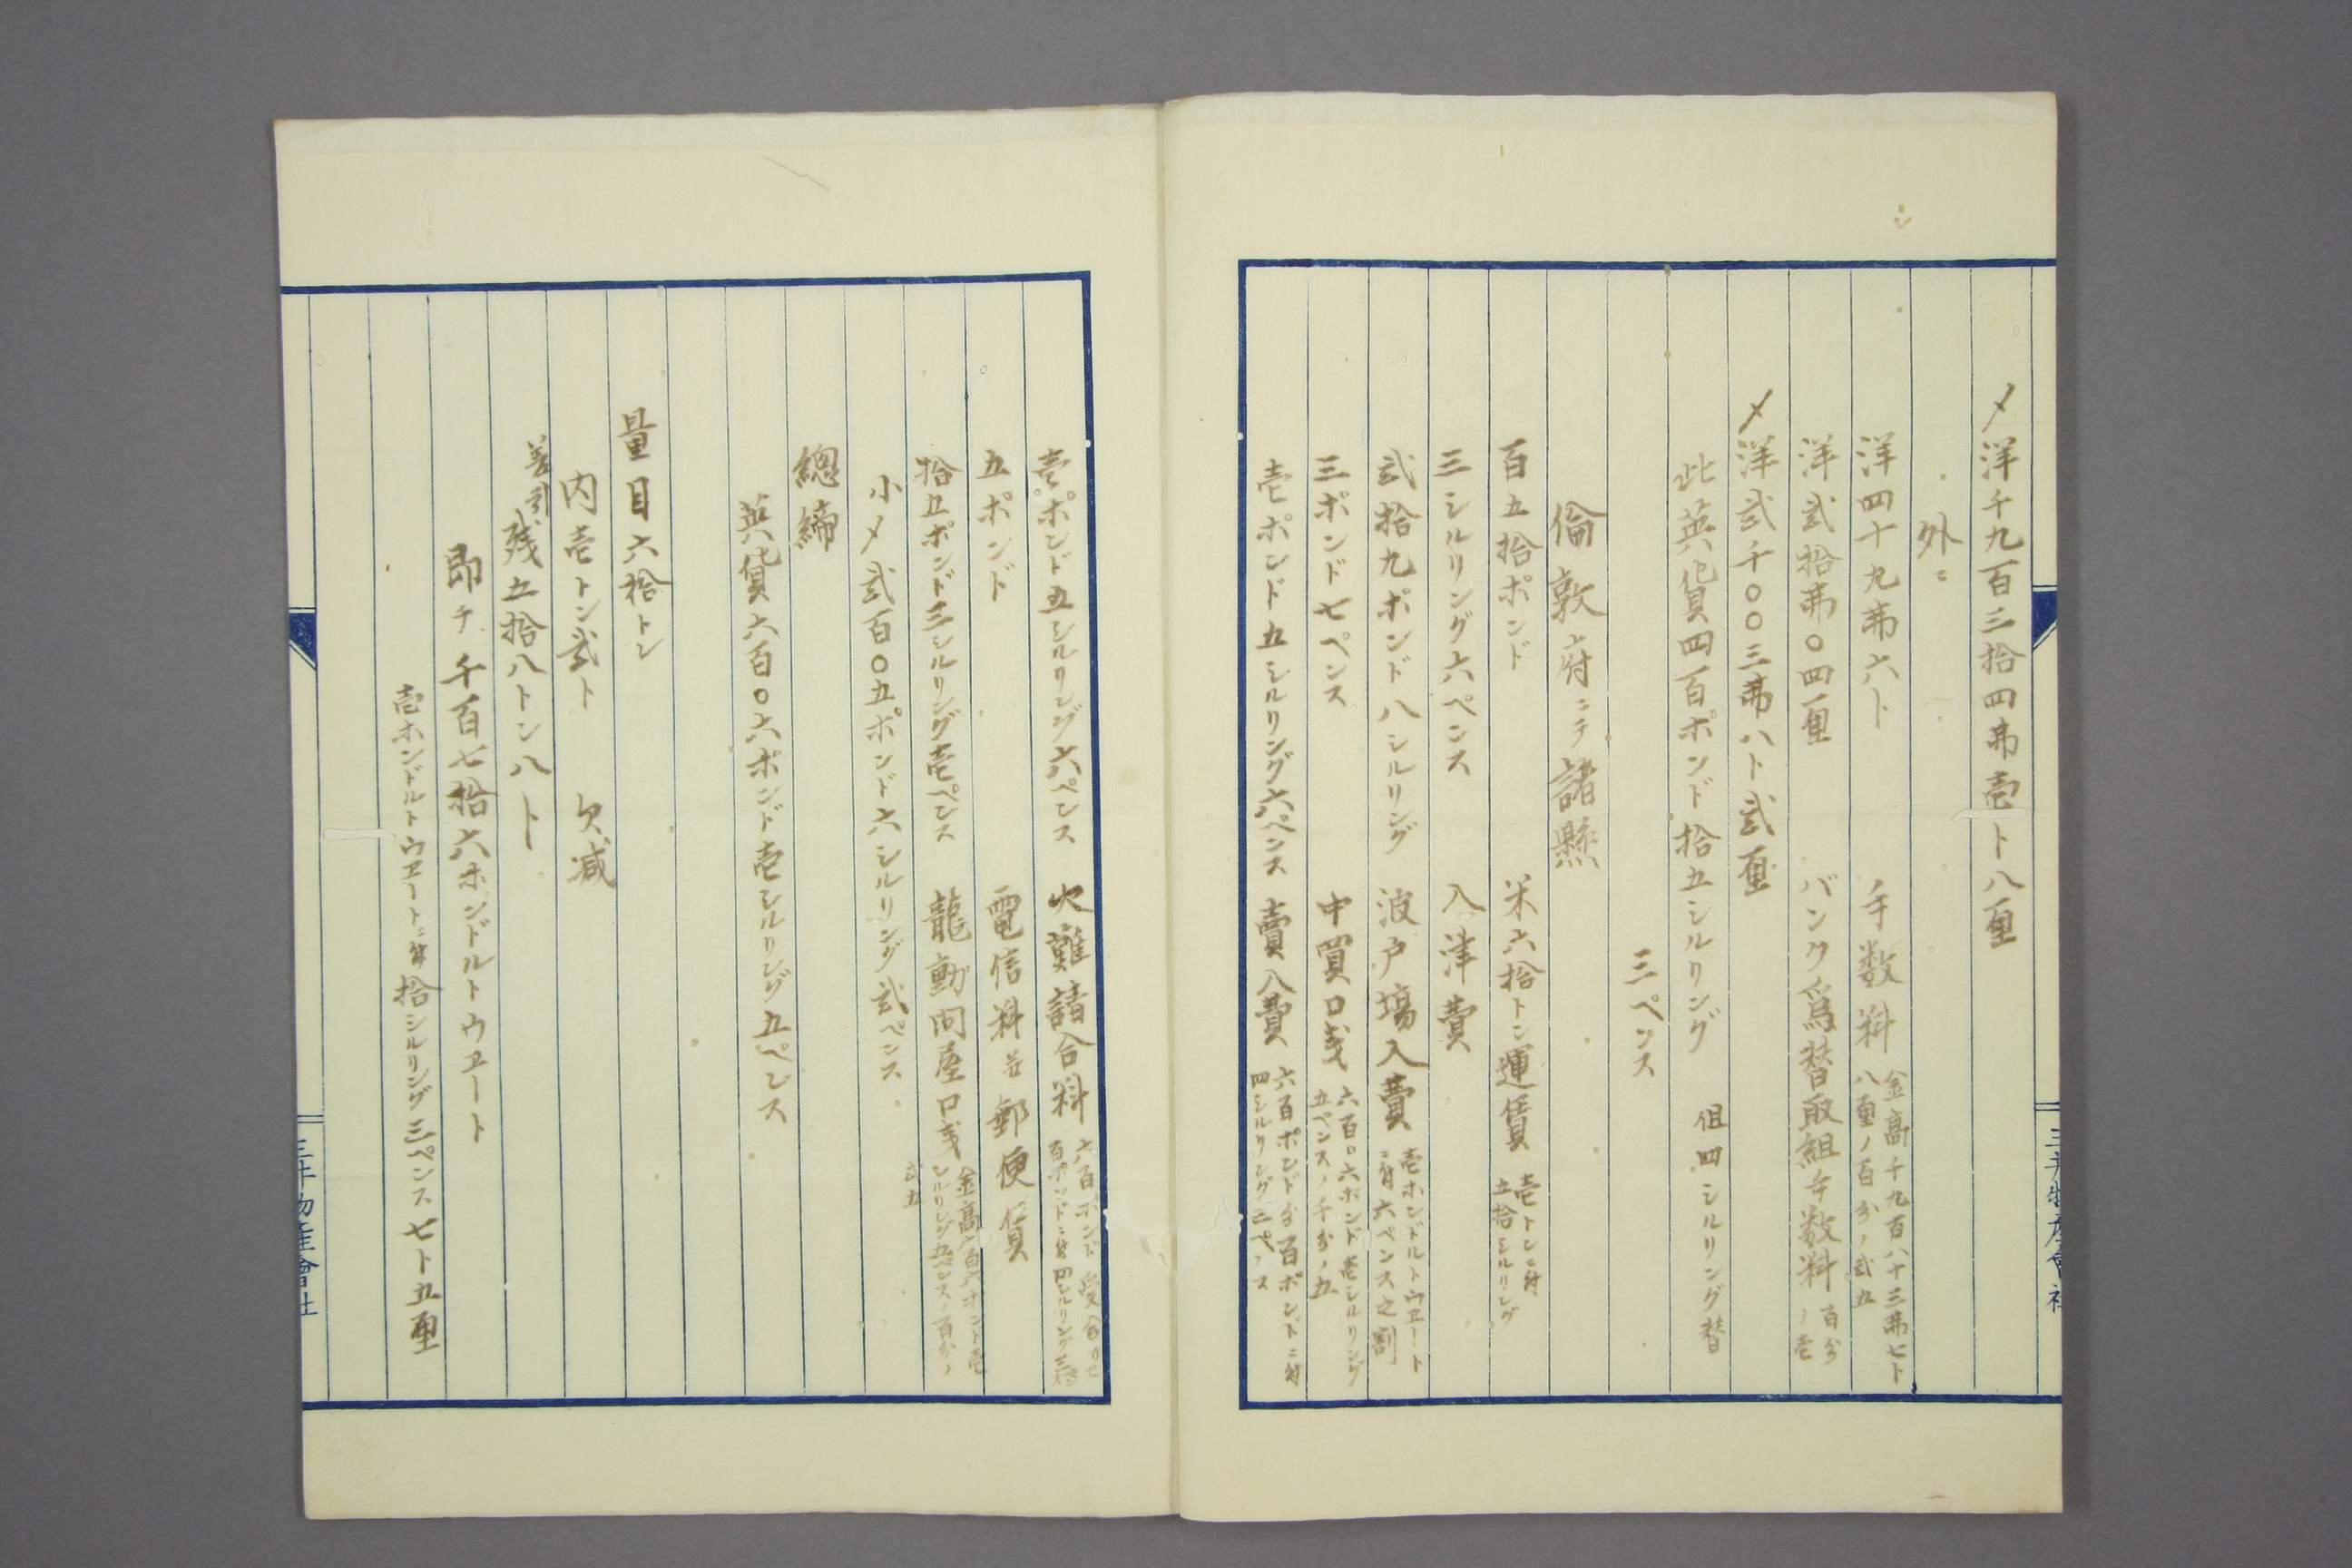 〆洋千九百三拾四弗壱ト八厘
外ニ
洋四十九弗六ト 手数料 金高千九百八十三弗七ト
八厘ノ百分ノ弐五
洋弐拾弗〇四厘 バンク為替取組手数料 百分
ノ壱
〆洋弐千〇〇三弗八ト弐厘
此英貨四百ポンド拾五シルリング 但四シルリング替
三ペンス
倫敦府ニテ諸懸
百五拾ポンド 米六拾トン運賃 壱トンニ付
五拾シルリング
三シルリング六ペンス 入津費
弐拾九ポンド八シルリング 波戸場入費 壱ホンドルトウエート
ニ付六ペンス之割
三ポンド七ペンス 中買口銭 六百〇六ホンド壱シルリング
五ペンスノ千分ノ五
壱ポンド五シルリング六ペンス 賣入費 六百ポンド分百ポンドニ付
四シルリング三ペンス
三井物産會社
壱ポンド五シルリング六ペンス 火難請合料 六百ポンド受合
百ポンドニ付四シルリング三ペンス
五ポンド 電信料並郵便賃
拾五ポンド三シルリング壱ペンス 龍動問屋口銭 金高六百六ホンド壱
シルリング五ペンスノ百分ノ
弐五
小〆弐百〇五ポンド六シルリング弐ペンス
總締
英貨六百〇六ポンド壱シルリング五ペンス
量目六拾トン
内壱トン弐ト 欠減
差引残五拾八トン八ト
即チ千百七拾六ホンドルトウエート
壱ホンドルトウエートニ付拾シルリング三ペンス七ト五厘
三井物産會社